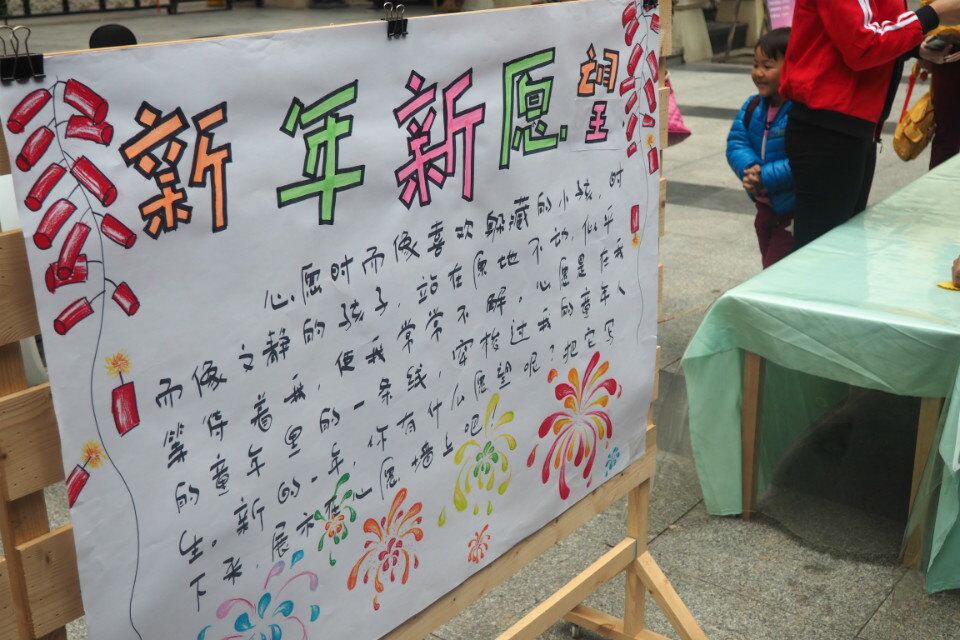 新年新愿望
心愿时而像喜欢躲藏的小孩，时
而像文静的孩子，站在原地不动，似乎
等待着我，使我常常不解。心愿是在我
的童年里的一条线，穿梭过我的童年人
生。新的一年，你有什么愿望呢？把它写
下来，展示在心愿墙上吧